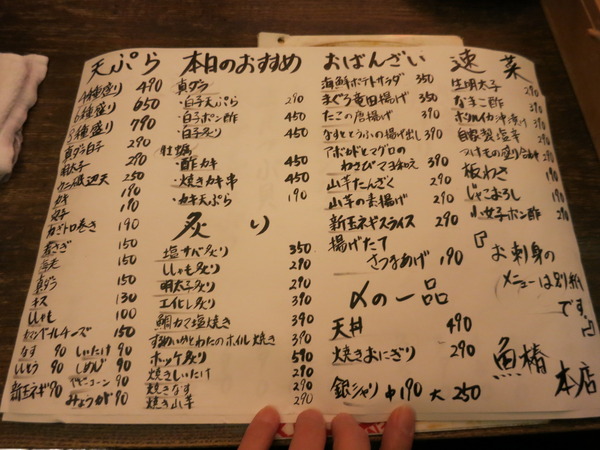 天ぷら
4種盛り 490
6種盛り 650
8種盛り 790
真ダラ白子 290
明太子 290
カニ磯辺天 250
カキ 190
穴子 190
ねぎトロ巻き 190
150
150
真ダラ 150
キス 130
ししゃも 100
カマンベールチーズ 150
なす 90 しいたけ 90
ししとう 90 しめじ 90
新玉ネギ 90 ヤングコーン 90
みょうが 90
本日のおすすめ
真ダラ
・白子天ぷら 290
・白子ポン酢 450
・白子炙り 450
牡蠣
・酢カキ 450
・焼きカキ串 450
・カキ天ぷら 190
炙り
塩サバ炙り 350
ししゃも炙り 290
明太子炙り 290
エイヒレ炙り 390
鯛カマ塩焼き 390
するめいかとわたのホイル焼き 390
ホッケ炙り 590
焼きしいたけ 290
焼きなす 290
焼き山芋 290
おばんざい
海鮮ポテトサラダ 350
まぐろ竜田揚げ 350
たこの唐揚げ 390
なすととうふの揚げ出し 390
アボカドとマグロの
わさびマヨ和え 390
山芋たんざく 290
山芋の素揚げ 290
新玉ネギスライス 290
揚げたて
さつまあげ 190
〆の一品
天丼 490
焼きおにぎり 290
銀シャリ 中190 大250
速菜
生明太子 290
なまこ酢
ホタルイカ沖漬け
自家製塩辛
つけもの盛り合わせ
板わさ
じゃこおろし
小女子ポン酢 290
『お刺身の
メニューは別紙
です。』
魚椿
本店